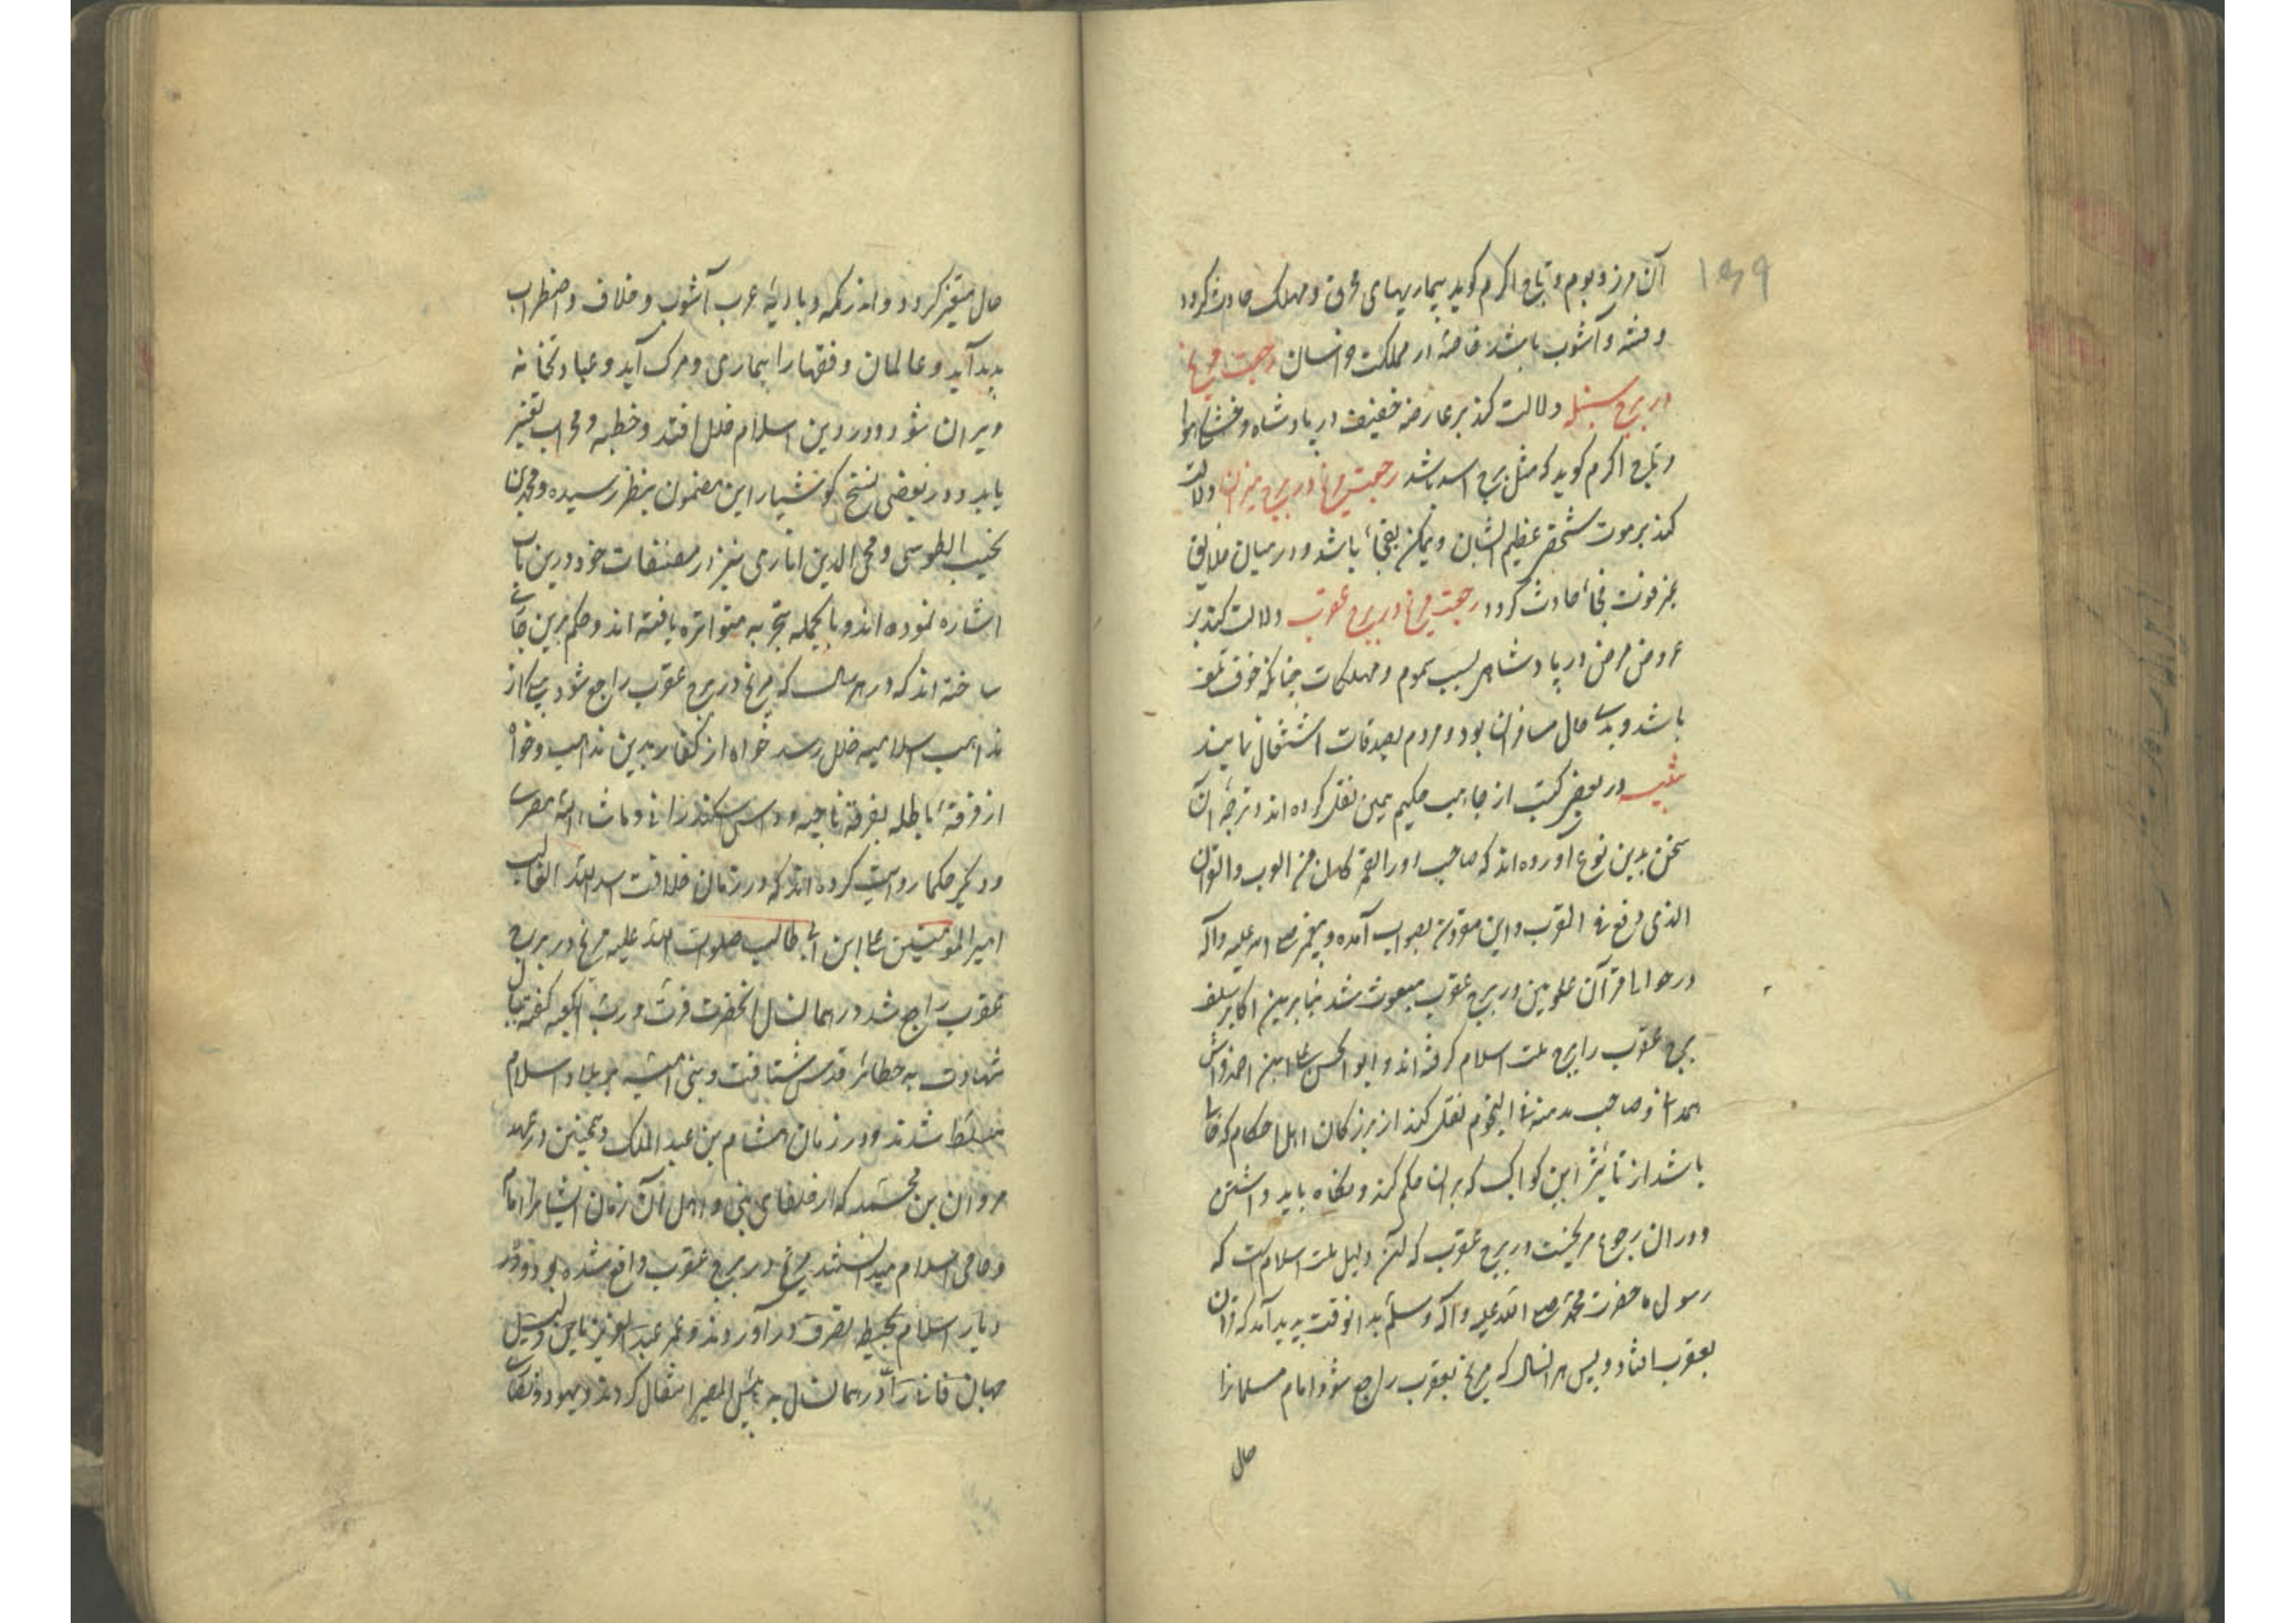 ۱۵۹
آن مرز و بوم و تاج اکرم کوید بیماریهای محرق و مهلک حادث کردد
و فتنه و آشوب باشد خاصهٔ در مملکت خراسان رجعت مریخ
در برج سنبله دلالت کند بر عارضهٔ خفیف در پادشاه و
و تاج اکرم کوید که مثل برج اسد باشد رجعت مریخ در برج میزان دلالت
کند بر موت شخصی عظیم الشان و یمکن بفجأ باشد و در میان خلایق
نیز فوت فجأ حادث کردد رجعت مریخ در برج عقرب دلالت کند بر
عروض مرض در پادشاهی بسبب سموم و مهلکات چنانکه خوف تلف
باشد و بدی حال مسافران بود و مردم بصدقات اشتغال نمایند
تنبیه در بعضی کتب از جاماسب حکیم همین نقل کرده اند و ترجمهٔ آن
سخن بدین نوع آورده اند که صاحب
الذی وقع فی العقرب و این مقدمه بصواب آمده و پیغمبر صلی الله علیه و آله
در حوالی قرآن علویین در برج عقرب مبعوث شد بنا برین اکابر سلف
برج عقرب را برج ملت اسلام کرفته اند و ابو الحسن علی ابن احمد
همدانی و صاحب مدینة النجوم نقل کند از بزرکان اهل احکام که
باشد از تأثیر این کواکب که بران حکم کند و نکاه باید داشتن
دوران رجوع مریخست در برج عقرب که آن دلیل ملت اسلام است که
رسول ما حضرت محمد صلی الله علیه و آله و سلم بدانوقت پدید آمد که قران
بعقرب افتاد و پس هر انسال که مریخ بعقرب راجع شود امام مسلمانرا
حال
حال متغیر کردد و اندر مکه و بادیهٔ عرب آشوب و خلاف و اضطراب
پدید آید و عالمان و فقها را بیماری و مرک آید و عبادتخانه
ویران شود و در دین اسلام خلل افتد و خطبه و محراب تغییر
یابد و در بعضی نسخ کوشیار این مضمون بنظر رسیده و محمد بن
نجیب الطوسی و محی الدین اناری نیز در مصنفات خود درین باب
اشاره نموده اند و بالجمله بتجربه متواتره یافته اند و حکم برین
ساخته اند که در هر سال که مریخ در برج عقرب راجع شود بیکی از
مذاهب اسلامیه خلل رسد خواه از کفار بدین مذاهب و خواه
از فرقهٔ باطله بفرقهٔ ناجیه و و ماشاء الله مصری
و دیکر حکما روایت کرده اند که در زمان خلافت اسد الله الغالب
امیر المؤمنین علی ابن ابی طالب صلوات الله علیه مریخ در برج
عقرب راجع شد در همان سال انحضرت فزت و رب الکعبه کفته
شهادت به حظائر قدس شتافت و بنی امیه بر بلاد اسلام
مسلط شدند و در زمان هشام بن عبد الملک و همچنین در عهد
مروان بن محمد که از خلفای بنی و اهل آن زمان ایشانرا امام
و حامی اسلام میدانستند مریخ در برج عقرب واقع شده بود و در
دیار اسلام بحیطه تصرف در آوردند و عمر عبد العزیز
جهان فانی را در همان سال به بئس المصیر انتقال کردند و یهود و نصاری